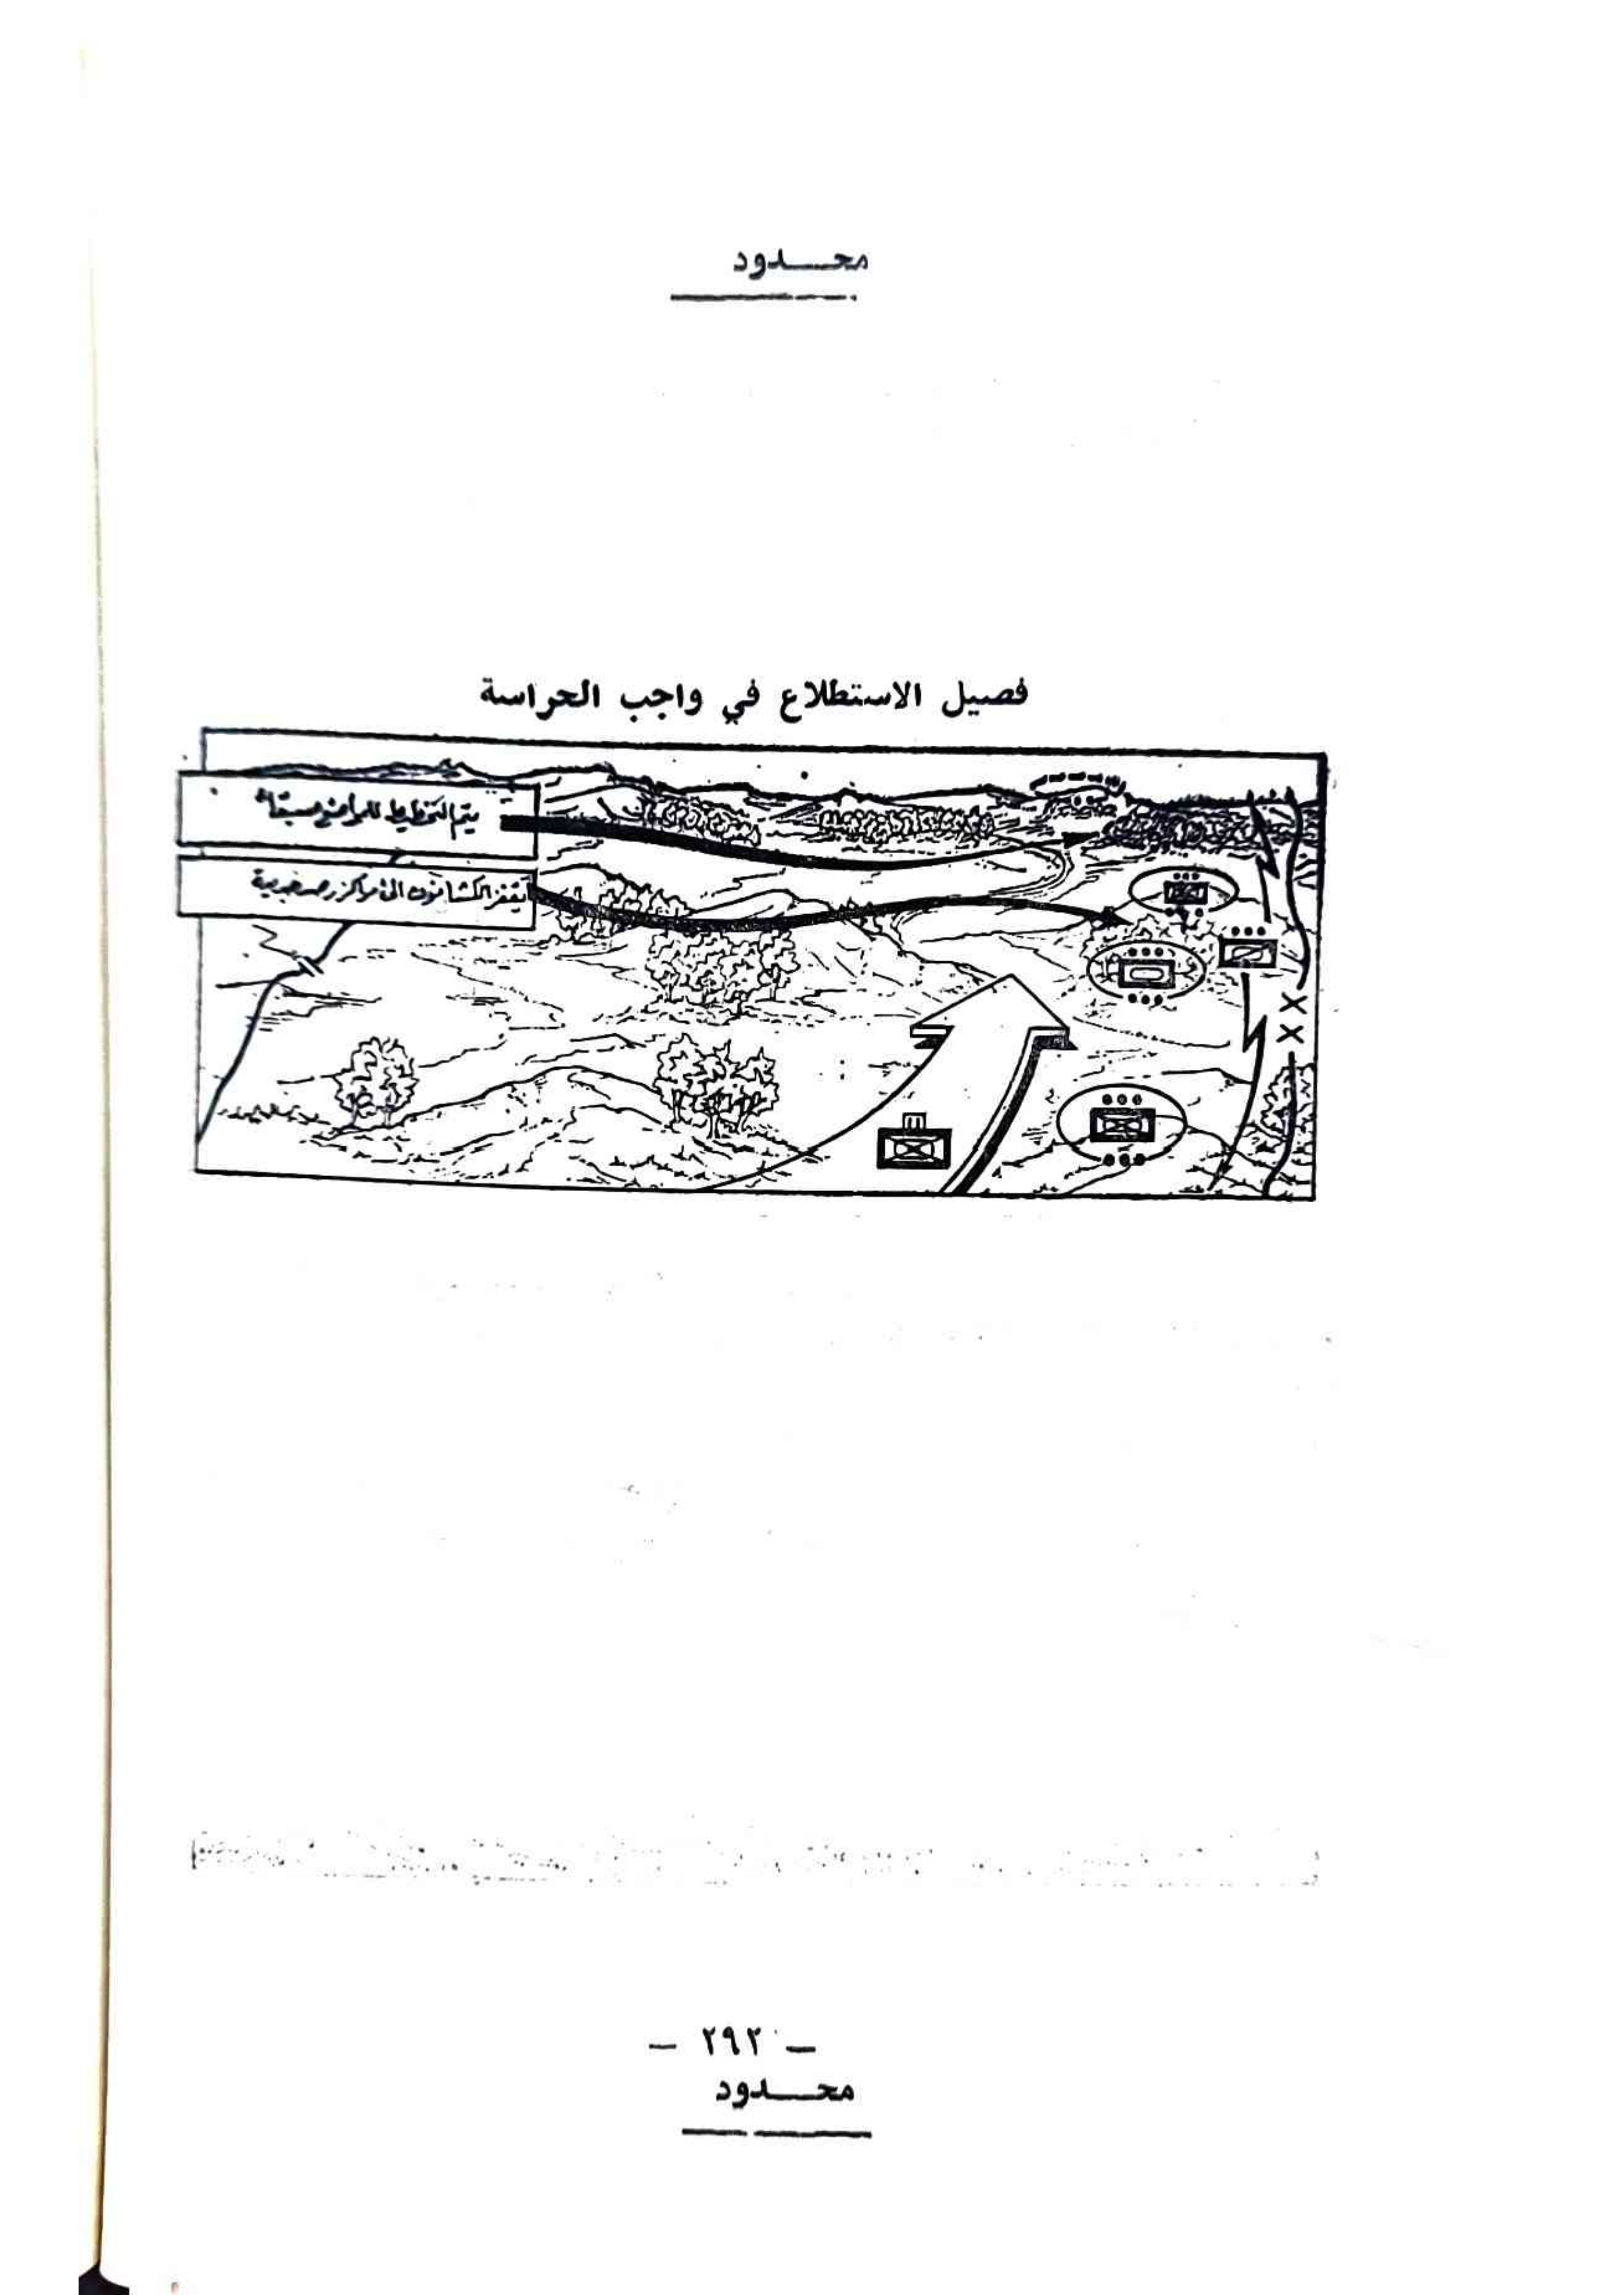 محدود
فصيل الاستطلاع في واجب الحراسة
يتم التخطيط للمواضع مسبقاً
يقفز الكشافون الى مراكز رصد جديدة
XX
- ٢٩٢ -
محدود